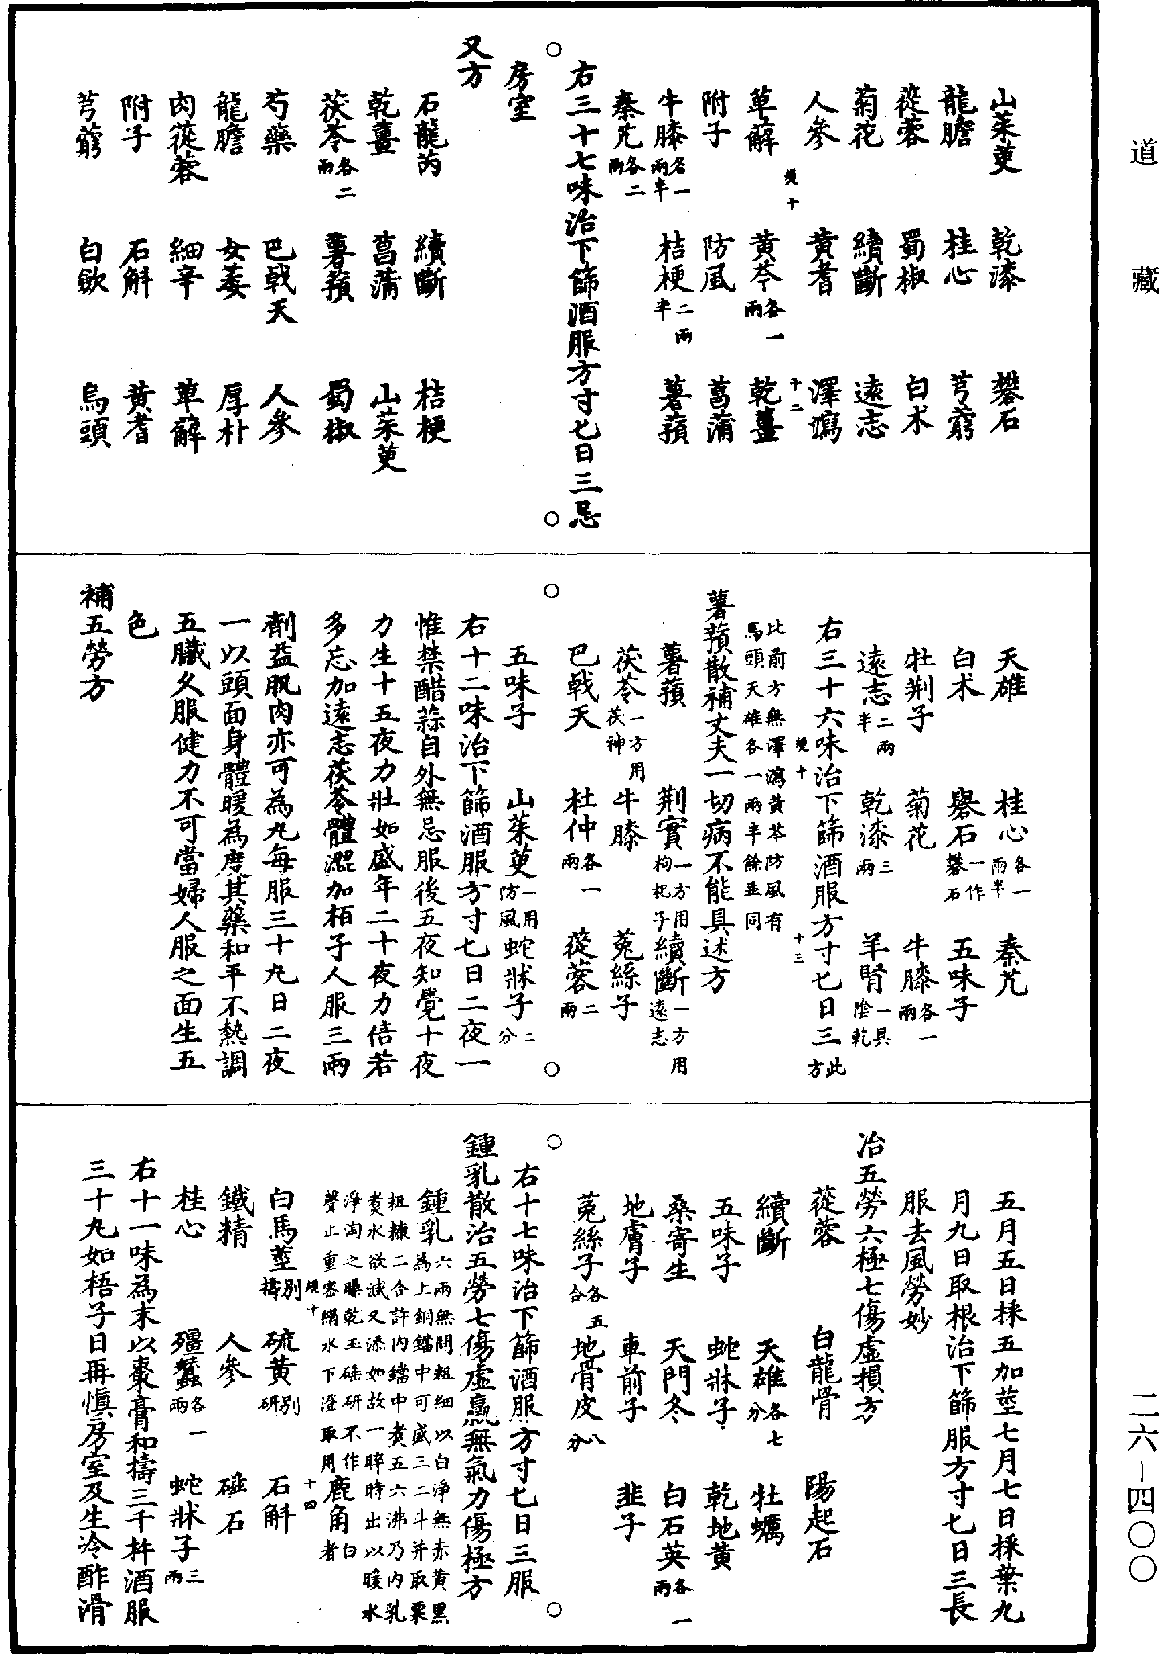 道藏
二六—四〇〇
山茱萸 乾漆 礬石
龍膽 桂心 芎藭
蓯蓉 蜀椒 白朮
菊花 續斷 遠志
人參 黃耆 澤瀉
競十 十二
萆薢 黃芩各一兩 乾薑
附子 防風 菖蒲
牛膝各一兩半 桔梗二兩半 薯蕷
秦艽各二兩
右三十七味治下篩酒服方寸匕日三忌
房室
又方
石龍芮 續斷 桔梗
乾薑 菖蒲 山茱萸
茯苓各二兩 薯蕷 蜀椒
芍藥 巴戟天 人參
龍膽 女萎 厚朴
肉蓯蓉 細辛 萆薢
附子 石斛 黃耆
芎藭 白歛 烏頭
天雄 桂心各一兩半 秦艽
白朮 礜石一作礬石 五味子
牡荆子 菊花 牛膝各一兩
遠志二兩半 乾漆三兩 羊腎一具陰乾
競十 十三
右三十六味治下篩酒服方寸匕日三此方
比前方無澤瀉黃芩防風有
烏頭天雄各一兩半餘並同
薯蕷散補丈夫一切病不能具述方
薯蕷 荆實一方用枸杞子 續斷一方用遠志
茯苓一方用茯神 牛膝 菟絲子
巴戟天 杜仲各一兩 蓯蓉二兩
五味子 山茱萸一用防風 蛇牀子二分
右十二味治下篩酒服方寸匕日二夜一
惟禁醋蒜自外無忌服後五夜知覺十夜
力生十五夜力壯如盛年二十夜力倍若
多忘加遠志茯苓體澀加栢子人服三兩
劑益肌肉亦可為丸每服三十九日二夜
一以頭面身體暖為度其藥和平不熱調
五臟久服健力不可當婦人服之面生五
色
補五勞方
五月五日採五加莖七月七日採葉九
月九日取根治下篩服方寸匕日三長
服去風勞妙
治五勞六極七傷虛損方
蓯蓉 白龍骨 陽起石
續斷 天雄各七分 牡蠣
五味子 蛇牀子 乾地黃
桑寄生 天門冬 白石英各一兩
地膚子 車前子 韭子
菟絲子各五合 地骨皮八分
右十七味治下篩酒服方寸匕日三服
鍾乳散治五勞七傷虛羸無氣力傷極方
鍾乳六兩無問粗細以白淨無赤黃黑
為上銅鐺中可盛三二斗并取粟
粗糠二合許內鐺中煮五六沸乃內乳
煮水欲減又添如故一晬時出以暖水
淨淘之曝乾玉碪研不作
聲止重密絹水下澄取用 鹿角白者
競十 十四
白馬莖別擣 硫黃別研 石斛
鐵精 人參 磁石
桂心 殭蠶各一兩 蛇牀子三兩
右十一味為末以棗膏和擣三千杵酒服
三十九如梧子日再慎房室及生冷酢滑